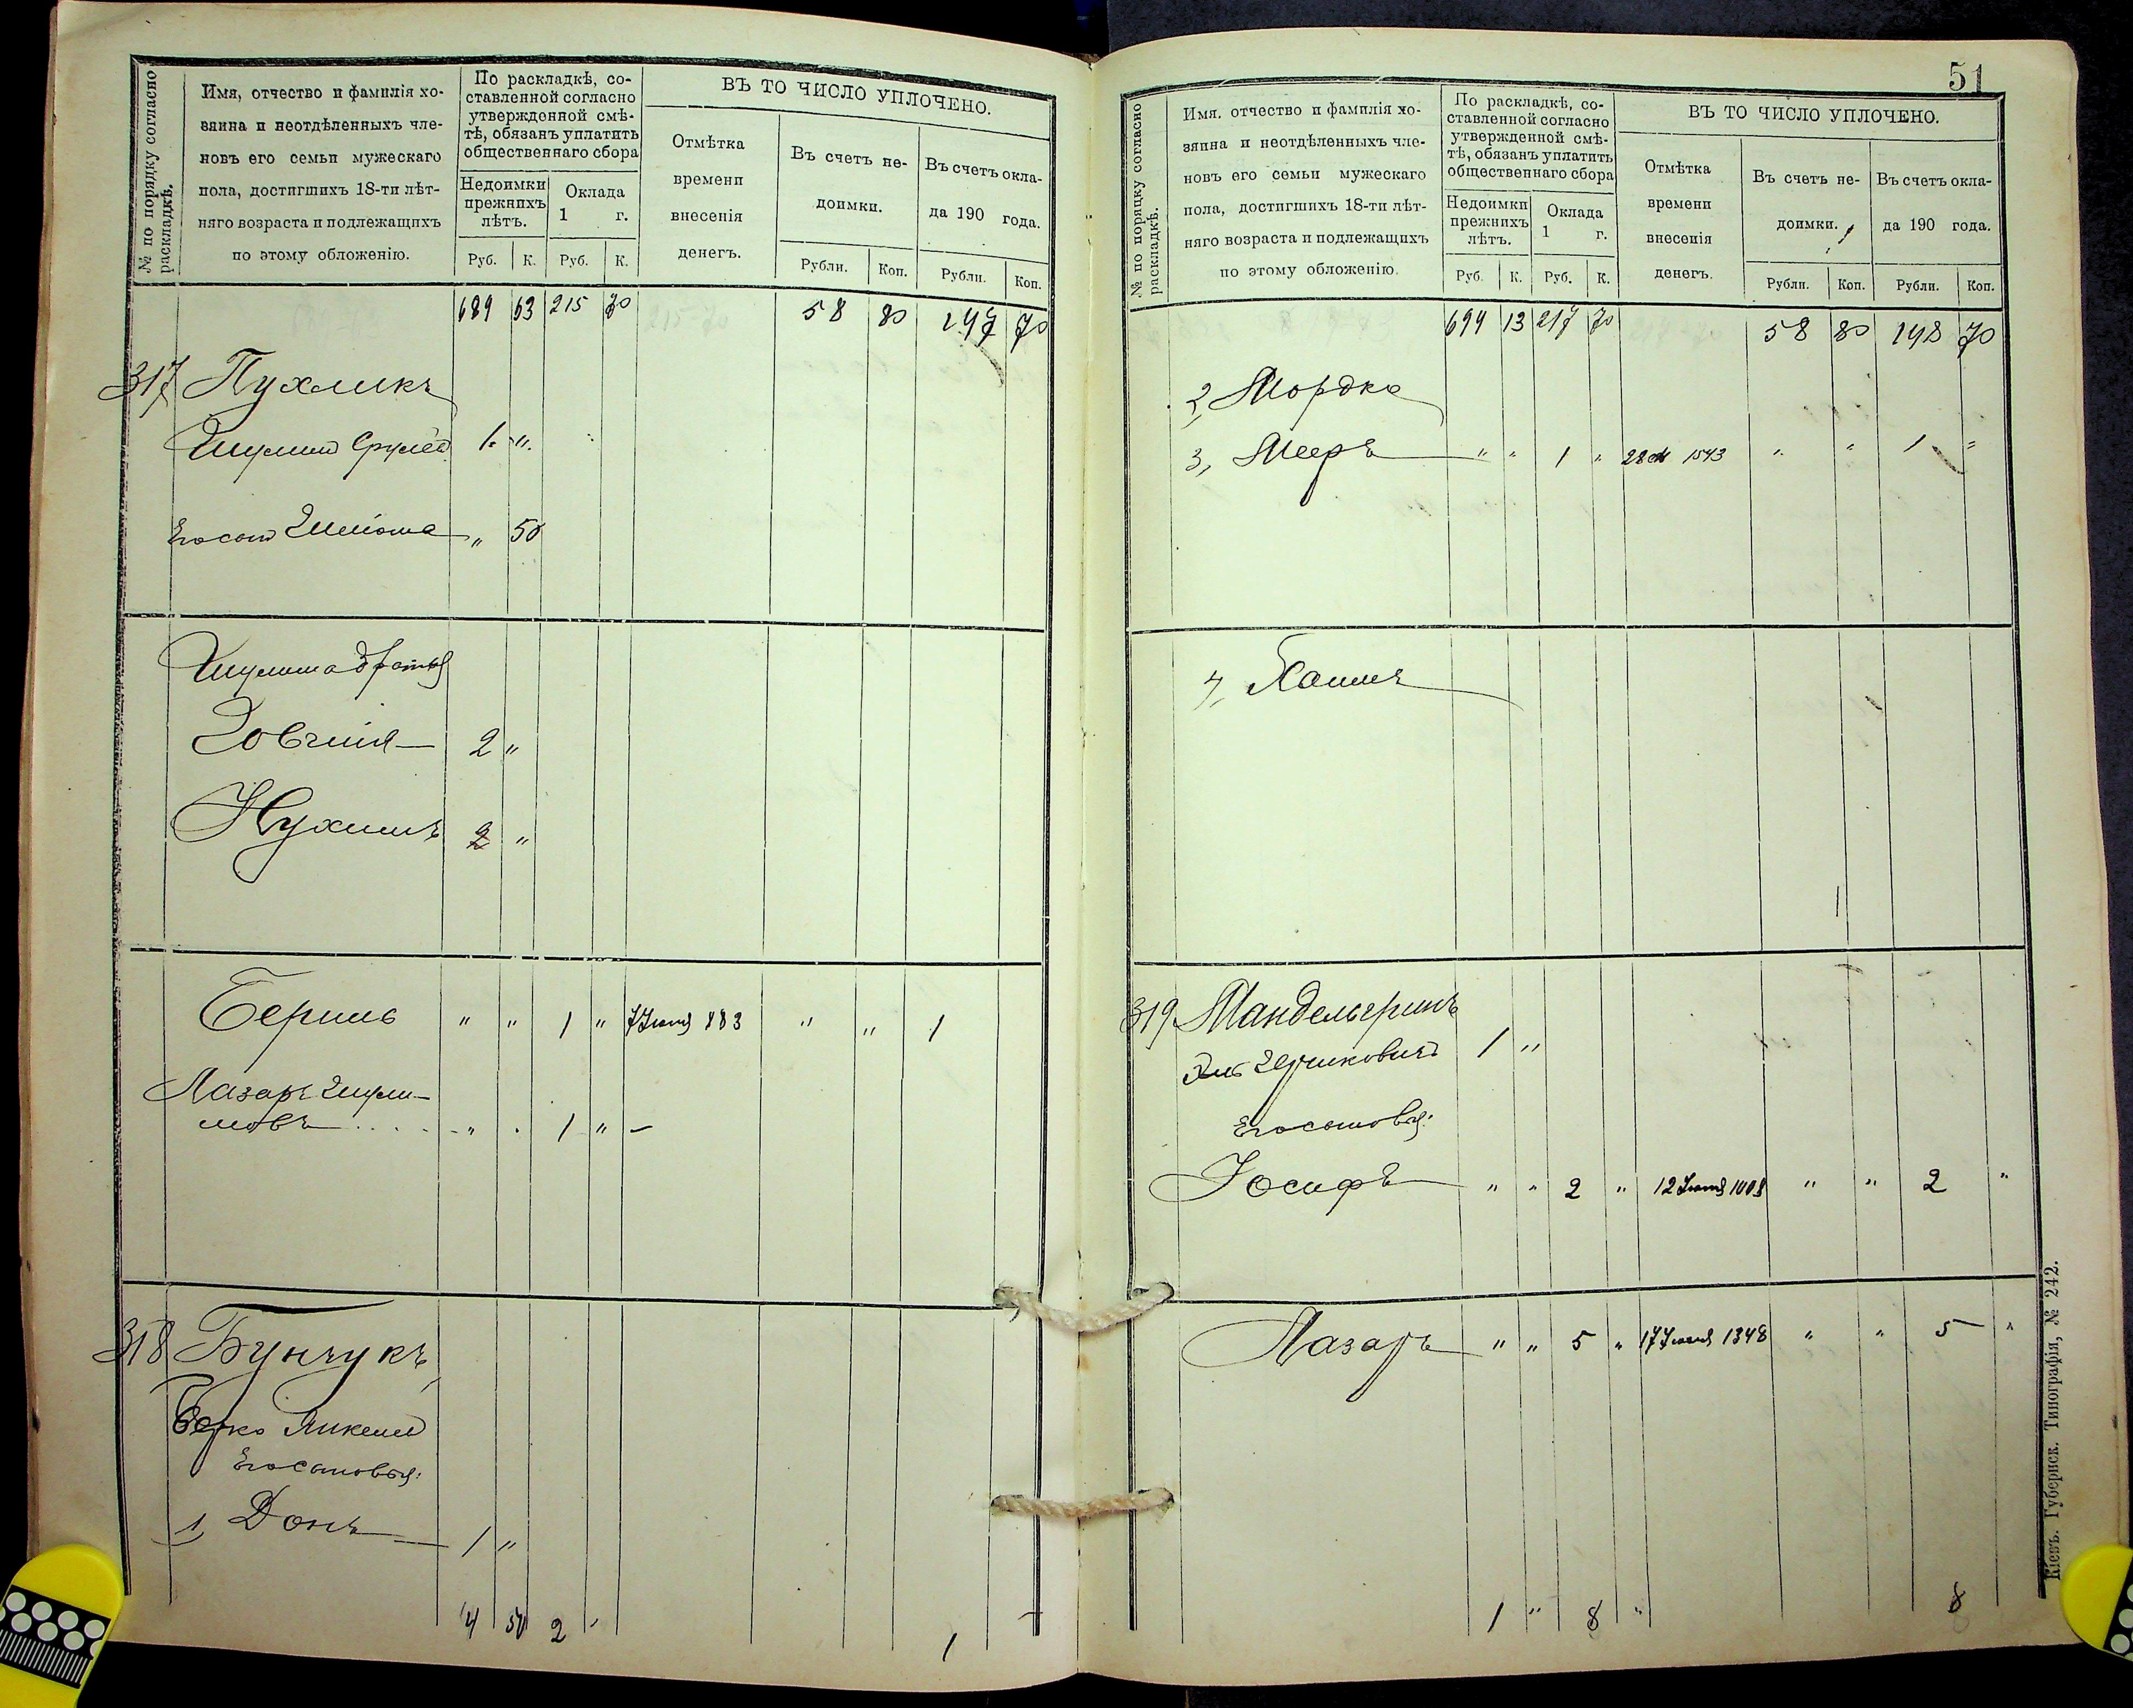 № по порядку согласно раскладкѣ.
Имя, отчество и фамилія хо-
зяина и неотдѣленныхъ чле-
новъ его семьи мужескаго
пола, достигшихъ 18-ти лѣт-
няго возраста и подлежащихъ
по этому обложенію.
По раскладкѣ, со-
ставленной согласно
утвержденной смѣ-
тѣ, обязанъ уплатить
общественнаго сбора
Недоимки прежнихъ лѣтъ.
Оклада 1 г.
Руб. К. Руб. К.
ВЪ ТО ЧИСЛО УПЛОЧЕНО.
Отмѣтка
времени
внесенія
денегъ.
Въ счетъ не-
доимки.
Въ счетъ окла-
да 190 года.
Рубли. Коп. Рубли. Коп.
689 63 215 70 58 80 147 70
317 Пухликъ
1 "
" 50
2 "
Нухимъ 2 "
" " 1 " 7 Іюня 883 " " 1
Лазарь
" . 1 " —
318 Бунчукъ
Берко
Его сыновья:
1, Донъ 1 "
4 50 2 " 1
51
№ по порядку согласно раскладкѣ.
Имя. отчество и фамилія хо-
зяина и неотдѣленныхъ чле-
новъ его семьи мужескаго
пола, достигшихъ 18-ти лѣт-
няго возраста и подлежащихъ
по этому обложенію.
По раскладкѣ, со-
ставленной согласно
утвержденной смѣ-
тѣ, обязанъ уплатить
общественнаго сбора
Недоимки прежнихъ лѣтъ.
Оклада 1 г.
Руб. К. Руб. К.
ВЪ ТО ЧИСЛО УПЛОЧЕНО.
Отмѣтка
времени
внесенія
денегъ.
Въ счетъ не-
доимки.
Въ счетъ окла-
да 190 года.
Рубли. Коп. Рубли. Коп.
694 13 217 70 58 80 148 70
2, Мордко
3, Мееръ " " 1 " 28 1543 " " 1 "
4, Хаимъ
319
1 "
Его сыновья:
Іосифъ " " 2 " 12 Іюня " " 2 "
Лазарь " " 5 " 17 Іюня 1348 " " 5 "
1 " 8 " 8
Кіевъ. Губернск. Типографія, № 242.